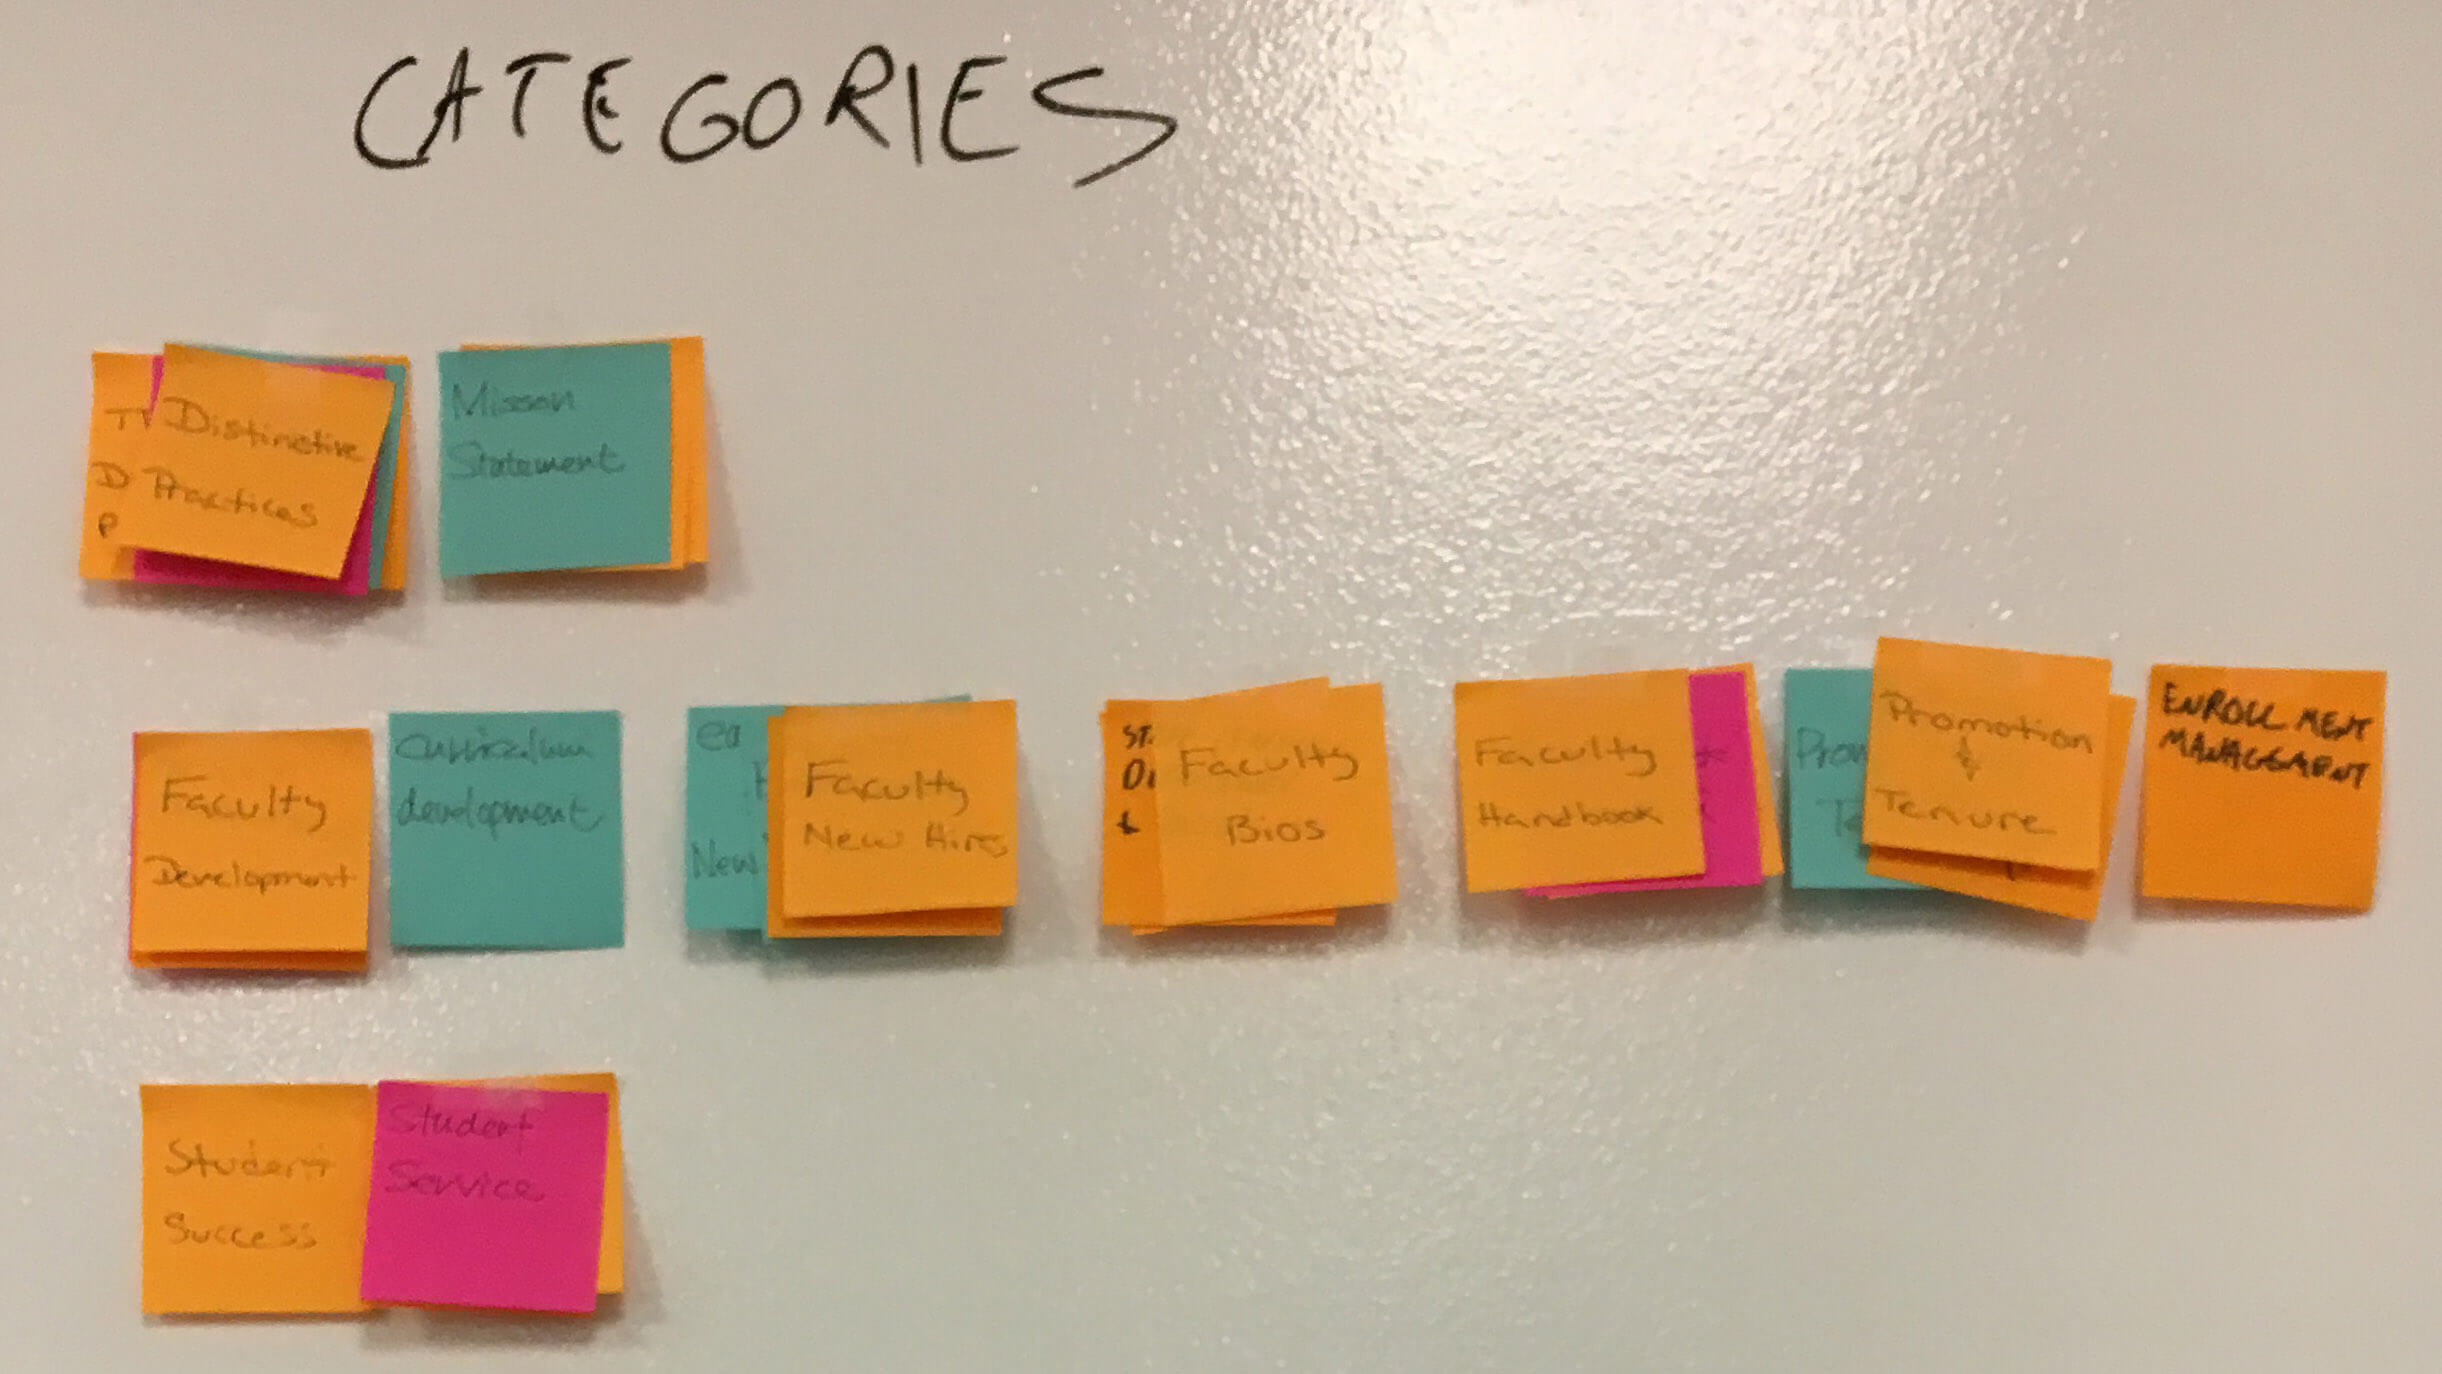 CATEGORIES
Distinctive
Practices
D
P
Misson
Statement
Faculty
Development
curriculum
development
New
Faculty
New Hires
ST.
Faculty
Bios
Faculty
Handbook
Promotion
&
Tenure
ENROLLMENT
MANAGEMENT
Student
Success
Student
Service